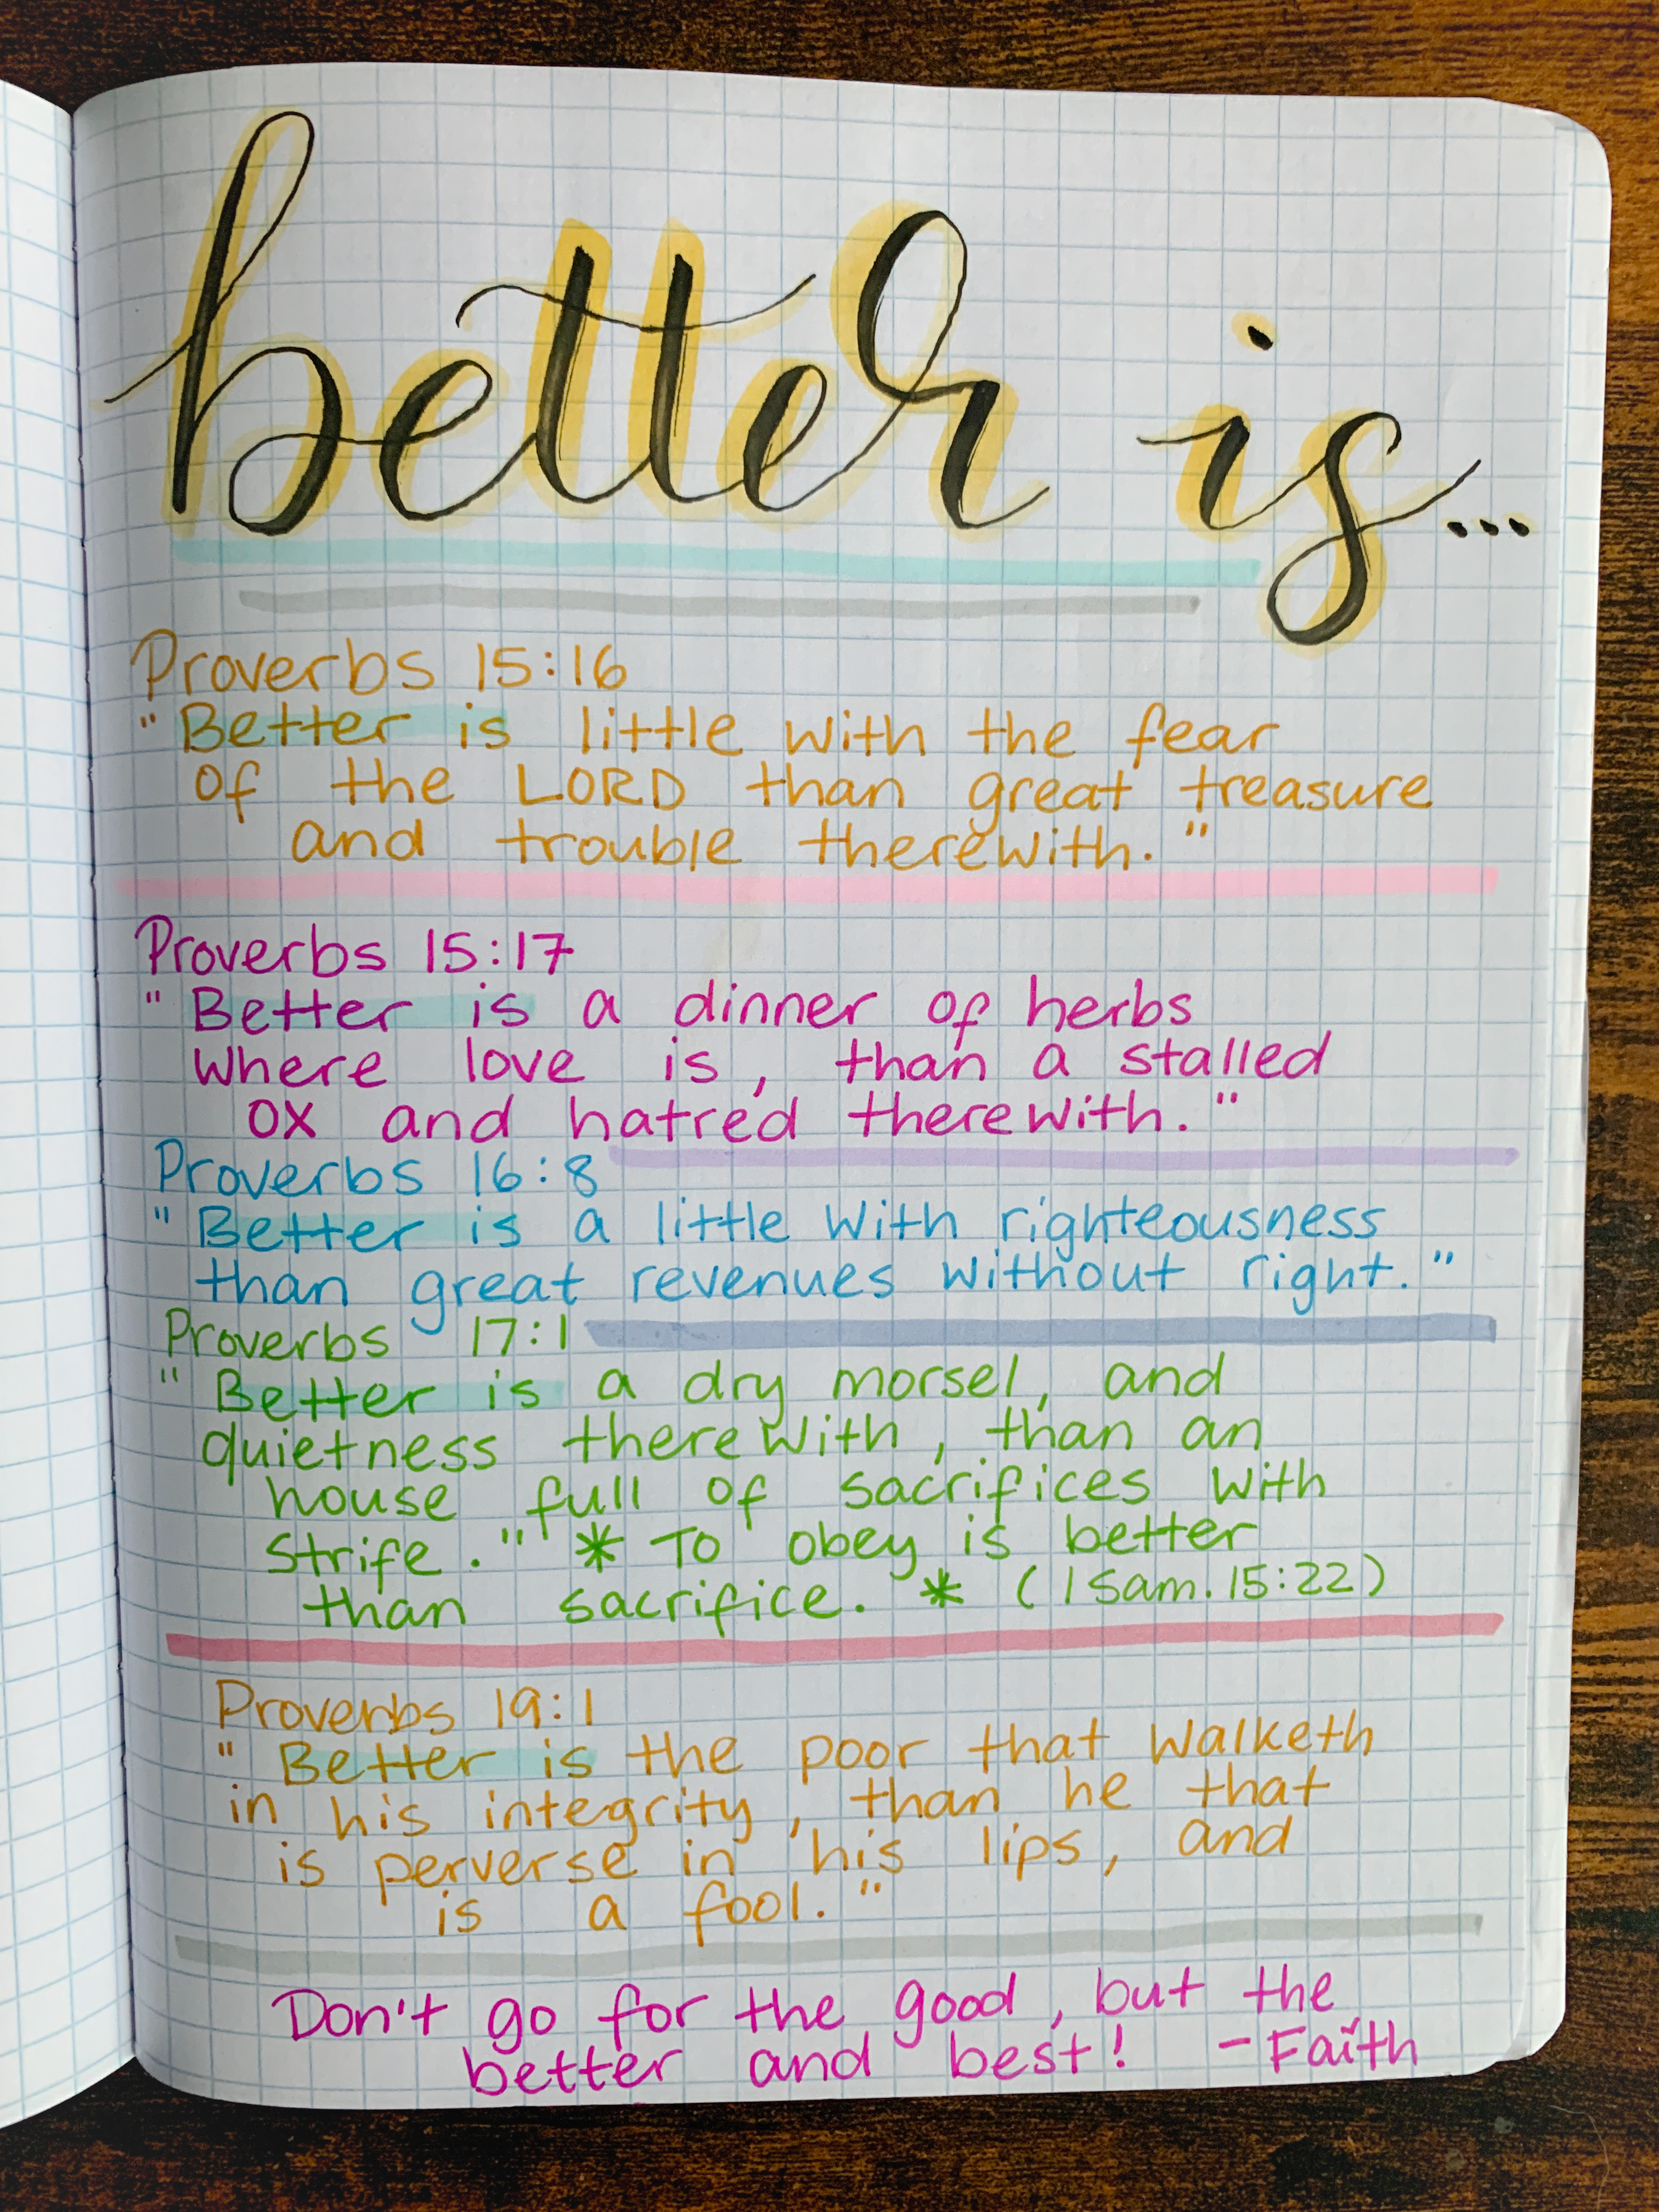 better is...
Proverbs 15:16
"Better is little with the fear
of the LORD than great treasure
and trouble therewith."
Proverbs 15:17
"Better is a dinner of herbs
where love is, than a stalled
ox and hatred therewith."
Proverbs 16:8
"Better is a little with righteousness
than great revenues without right."
Proverbs 17:1
"Better is a dry morsel, and
quietness therewith, than an
house full of sacrifices with
strife." * To obey is better
than sacrifice. * (1 Sam. 15:22)
Proverbs 19:1
"Better is the poor that walketh
in his integrity, than he that
is perverse in his lips, and
is a fool."
Don't go for the good, but the
better and best! - Faith